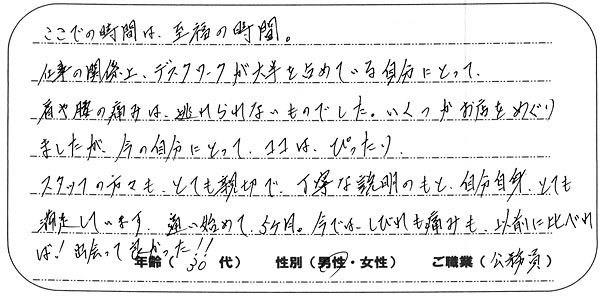 ここでの時間は、至福の時間。
仕事の関係上、デスクワークが大半を占めている自分にとって、
肩や腰の痛みは、逃れられないものでした。いくつかお店をめぐり
ましたが、今の自分にとって、ココは、ぴったり。
スタッフの方々も、とても親切で、丁寧な説明のもと、自分自身、とても
満足しています。通い始めて、5ヶ月。今では、しびれも痛みも、以前に比べれ
ば!出会ってよかった!!
年齢(30代) 性別(男性・女性) ご職業(公務員)